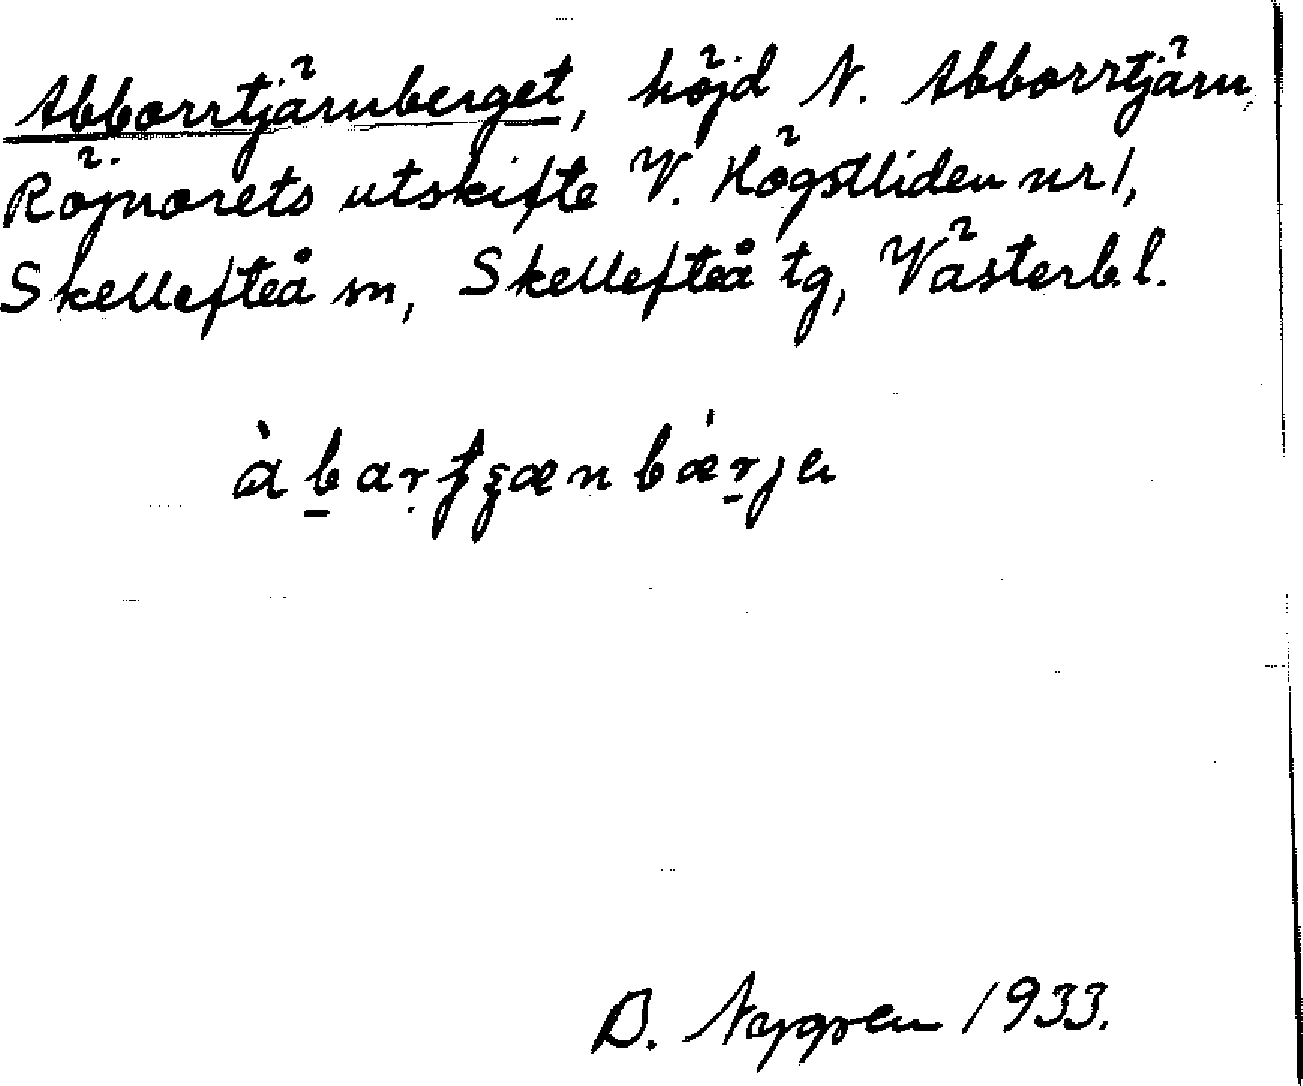 Abborrtjärnberget, höjd N. Abborrtjärn,
Röjnorets utskifte V. Högstliden nr 1,
Skellefteå sn, Skellefteå tg, Västerb. l.
Nygren 1933.